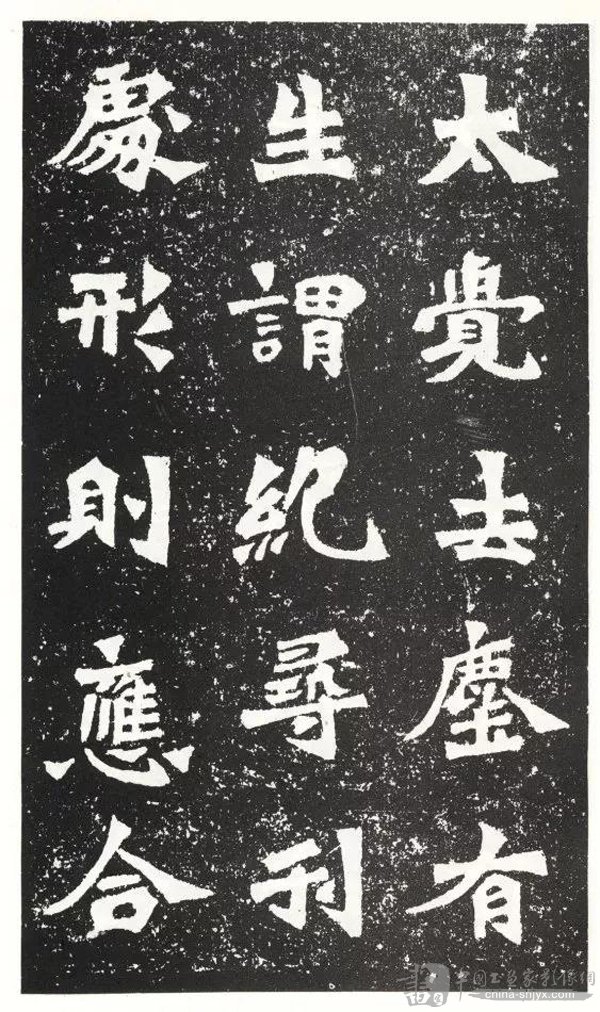 太覺去塵有
生謂紀尋刊
處形則應合
china-shjyx.com